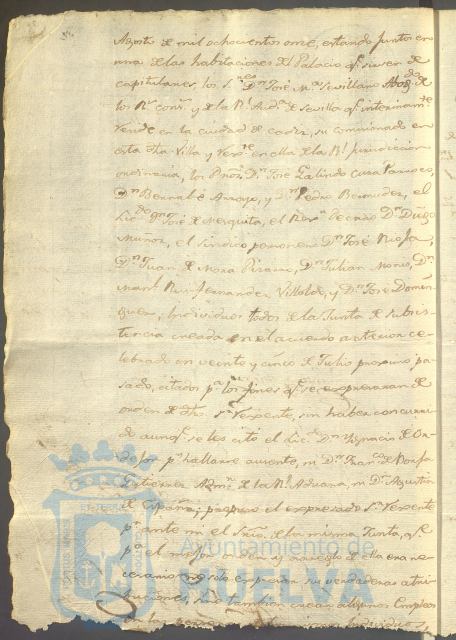 Agosto de mil ochocientos once, estando juntos en
una de las habitaciones del Palacio qe. sirven de
capitulares, los Sres. Dn. José Ma. Sevillano Abogdo. de
los Rs. conss. y de la Rl. Auda. de Sevilla qe. interinamte.
reside en la ciudad de Cadiz, su comisionado en
esta dha. Villa y en ella de la Rl. Jurisdiccion
ordinaria, los Dn. José Galindo Cura Parroco,
Dn. Bernabé Arroyo, y Dn. Pedro Bermudez, el
Licdo. Dn. José de Mezquita, el Dn. Diego
Muñoz, el sindico personero Dn. José Rioja,
Dn. Juan de Mora Pizarro, Dn. Julian Dn.
Manl. Fernandez Villalde, y Dn. José Domin-
guez, Individuos todos de la Junta de subsis-
tencia creada en el acuerdo anterior ce-
lebrado en veinte y cinco de Julio proximo pa-
sado, citados pa. los fines qe. se expresaran de
orden de dho. Sr. sin haber concurri-
do aunqe. se les citó el Licdo. Dn. Ygnacio de Or-
pr. hallarse ausente, ni Dn. Franco. de
Gutierrez Admr. de la Rl. Aduana, ni Dn. Agustin
de España; propuso el expresado Sr.
pr. ante mi el Srio. de la misma Junta, qe.
pa. el mejor y arreglo de ella era ne-
cesario no solo expresar sus verdaderas atri-
buciones, sino tambien crear algunos Empleos
Ayuntamiento de
HUELVA